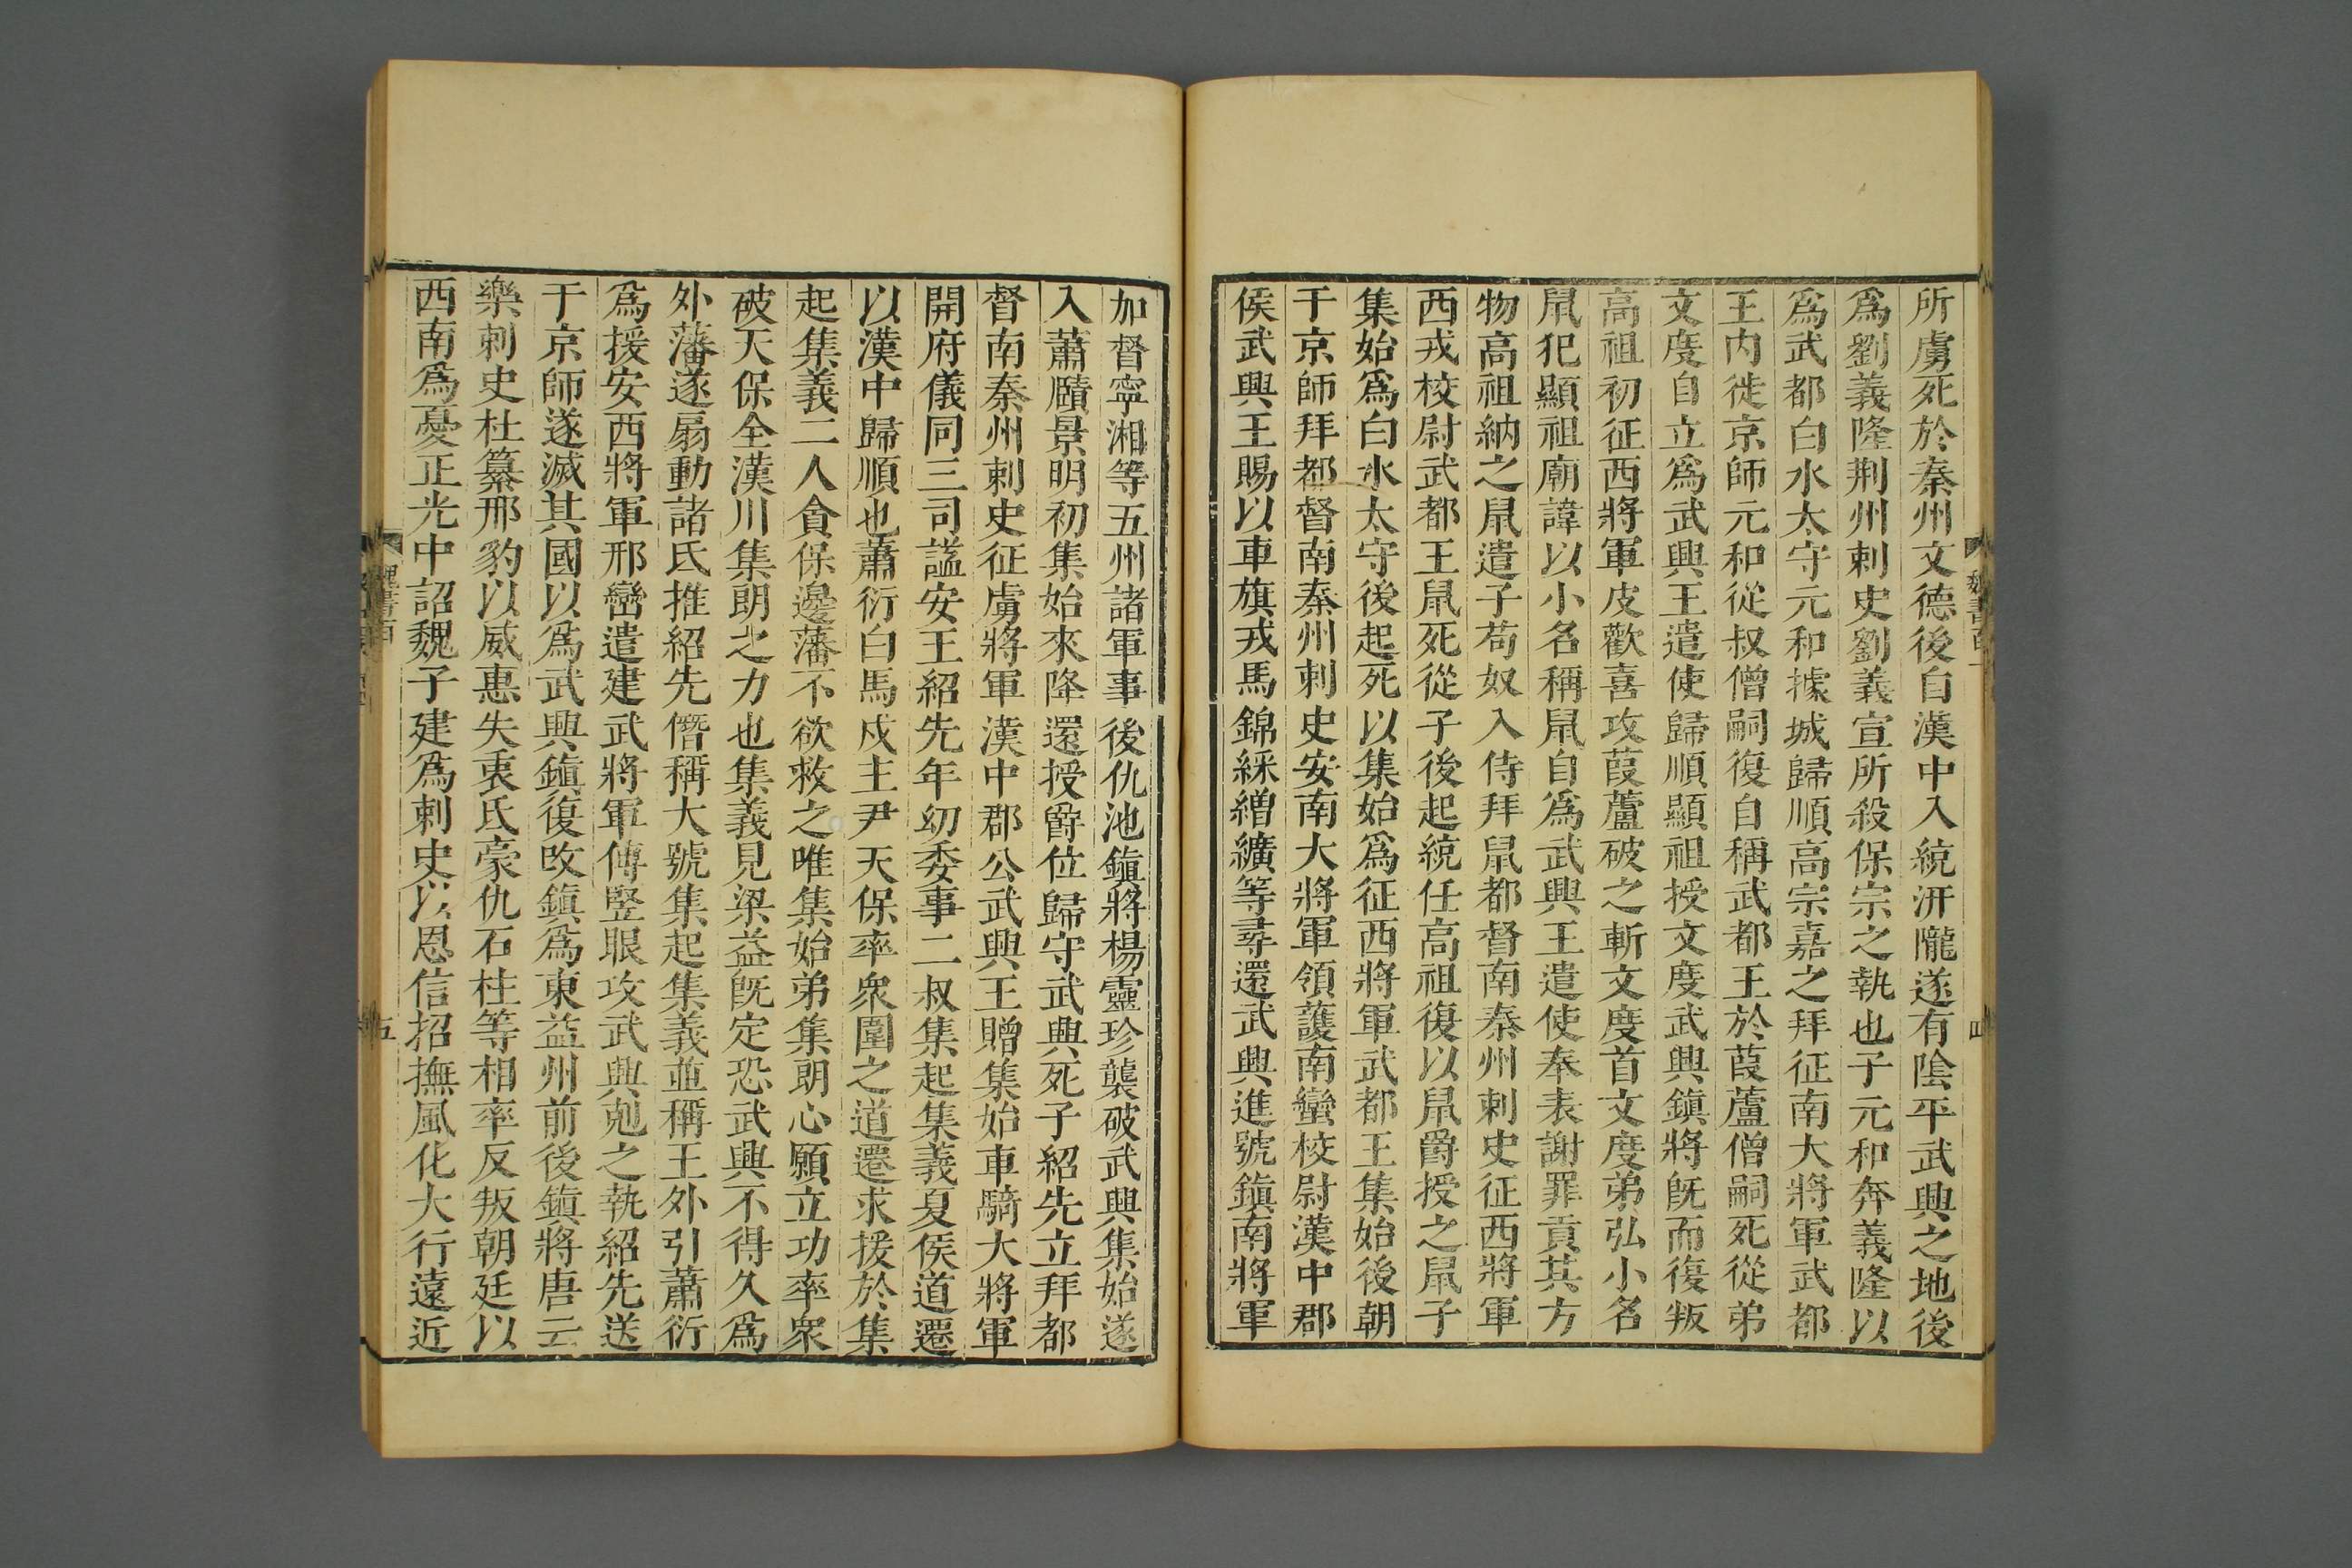 所虜死於秦州文德後自漢中入統汧隴遂有陰平武興之地後
爲劉義隆荆州刺史劉義宣所殺保宗之執也子元和奔義隆以
爲武都白水太守元和據城歸順高宗嘉之拜征南大將軍武都
王内徙京師元和從叔僧嗣復自稱武都王於葭蘆僧嗣死從弟
文度自立爲武興王遣使歸順顯祖授文度武興鎮將既而復叛
高祖初征西將軍皮歡喜攻葭蘆破之斬文度首文度弟弘小名
鼠犯顯祖廟諱以小名稱鼠自爲武興王遣使奉表謝罪貢其方
物高祖納之鼠遣子苟奴入侍拜鼠都督南秦州刺史征西將軍
西戎校尉武都王鼠死從子後起統任高祖復以鼠爵授之鼠子
集始爲白水太守後起死以集始爲征西將軍武都王集始後朝
于京師拜都督南秦州刺史安南大將軍領護南蠻校尉漢中郡
侯武興王賜以車旗戎馬錦綵繒纊等尋還武興進號鎮南將軍
魏書百一
四
加督寧湘等五州諸軍事後仇池鎮將楊靈珍襲破武興集始遂
入蕭賾景明初集始來降還授爵位歸守武興死子紹先立拜都
督南秦州刺史征虜將軍漢中郡公武興王贈集始車騎大將軍
開府儀同三司謚安王紹先年幼委事二叔集起集義夏侯道遷
以漢中歸順也蕭衍白馬戍主尹天保率衆圍之道遷求援於集
起集義二人貪保邊藩不欲救之唯集始弟集朗心願立功率衆
破天保全漢川集朗之力也集義見梁益既定恐武興不得久爲
外藩遂扇動諸氐推紹先僭稱大號集起集義並稱王外引蕭衍
爲援安西將軍邢巒遣建武將軍傅竪眼攻武興剋之執紹先送
于京師遂滅其國以爲武興鎮復改鎮爲東益州前後鎮將唐云
樂刺史杜纂邢豹以威惠失衷氐豪仇石柱等相率反叛朝廷以
西南爲憂正光中詔魏子建爲刺史以恩信招撫風化大行遠近
五